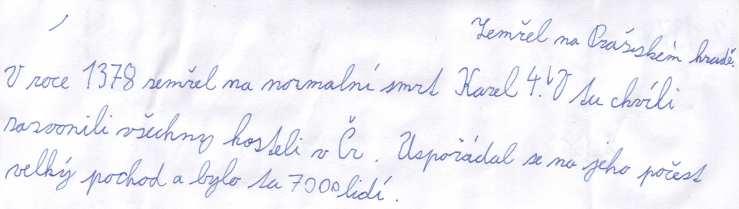 Zemřel na Pražském hradě.
V roce 1378 zemřel na normalní smrt Karel 4. V tu chvíli
zazvonili všechny kosteli v Čr. Uspořádal se na jeho počest
velký pochod a bylo tu 7000 lidí.